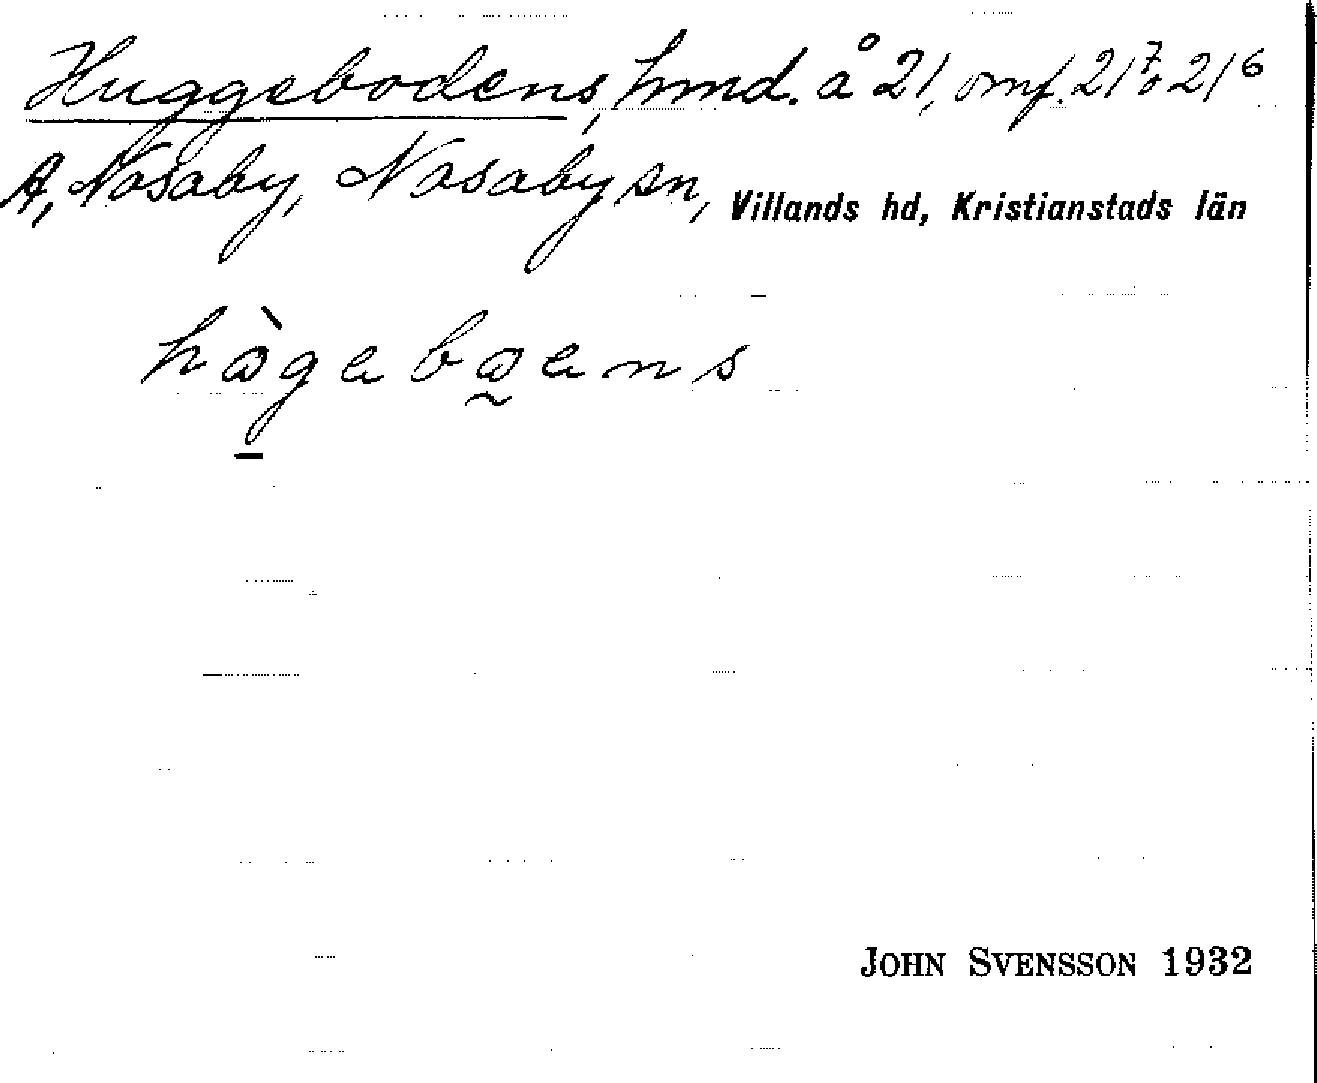 Huggebodens, hmd. å 21, omf. 21⁷ o 21⁶
A, Nosaby, Nosaby sn, Villands hd, Kristianstads län
hògeboens
JOHN SVENSSON 1932